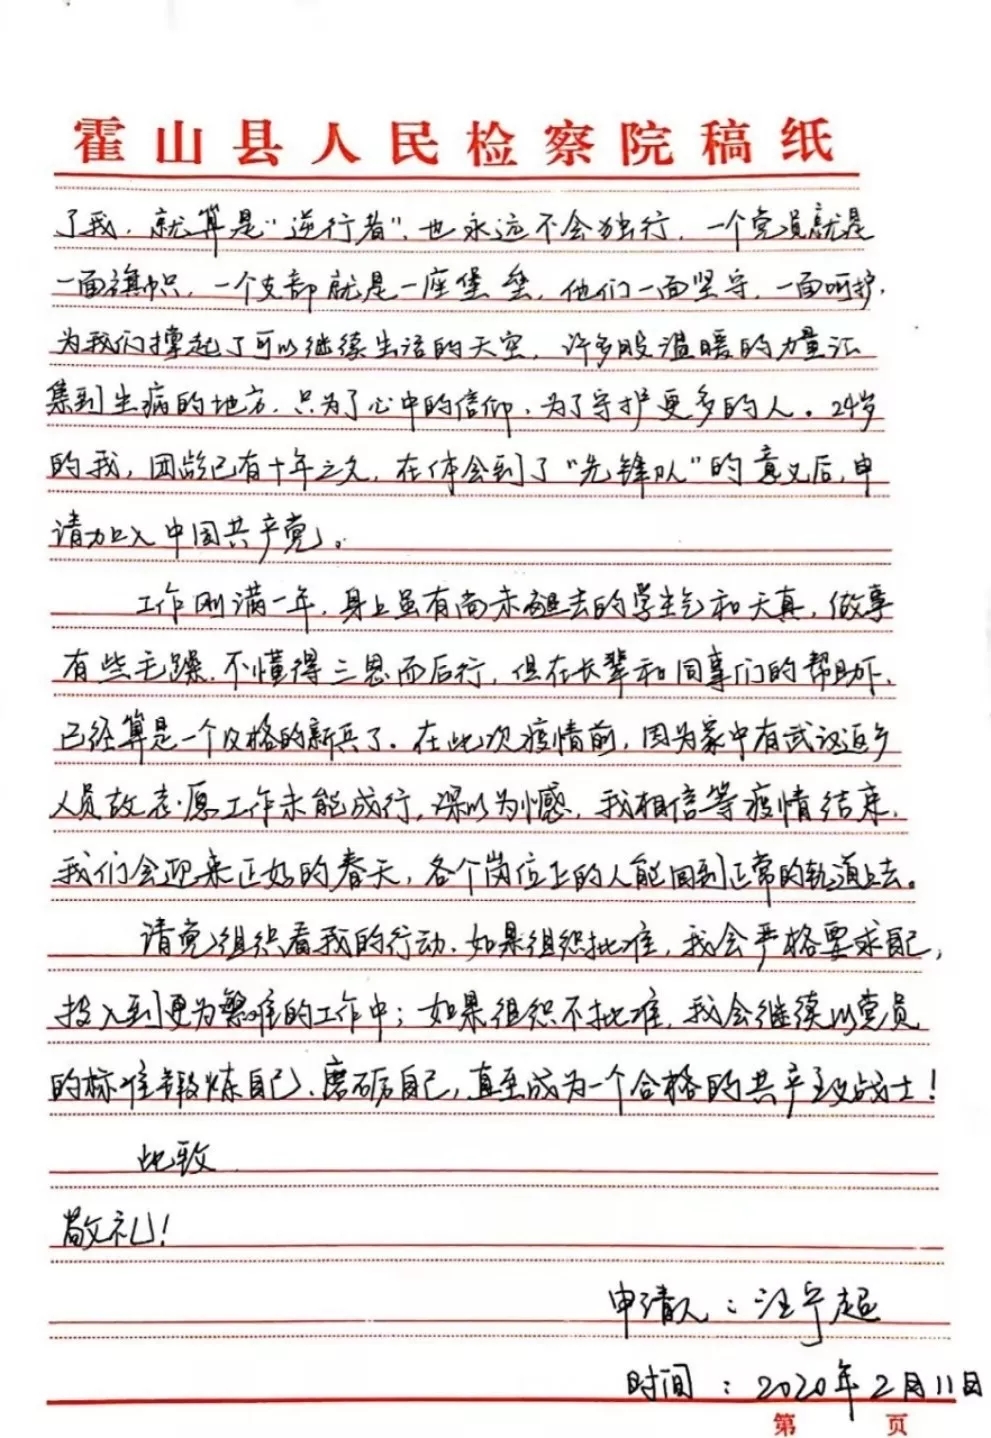 霍山县人民检察院稿纸
了我，就算是“逆行者”，也永远不会独行，一个党员就是
一面旗帜，一个支部就是一座堡垒，他们一面坚守，一面呵护，
为我们撑起了可以继续生活的天空，许多股温暖的力量汇
集到生病的地方，只为了心中的信仰，为了守护更多的人。24岁
的我，团龄已有十年之久，在体会到了“先锋队”的意义后，申
请加入中国共产党。
工作刚满一年，身上虽有尚未褪去的学生气和天真，做事
有些毛躁，不懂得三思而后行，但在长辈和同事们的帮助下，
已经算是一个及格的新兵了。在此次疫情前，因为家中有武汉返乡
人员故志愿工作未能成行，深以为憾，我相信等疫情结束，
我们会迎来正好的春天，各个岗位上的人能回到正常的轨道上去。
请党组织看我的行动，如果组织批准，我会严格要求自己，
投入到更为繁难的工作中；如果组织不批准，我会继续以党员
的标准锻炼自己、磨砺自己，直至成为一个合格的共产主义战士！
此致
敬礼！
申请人：汪宁超
时间：2020年2月11日
第 页